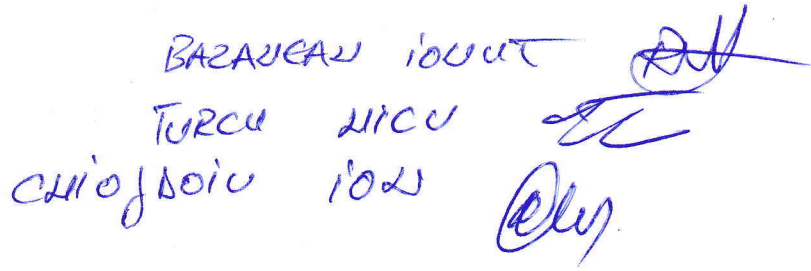 BAZANCAN IONUT
TURCU NICU
CHIOJDOIU ION